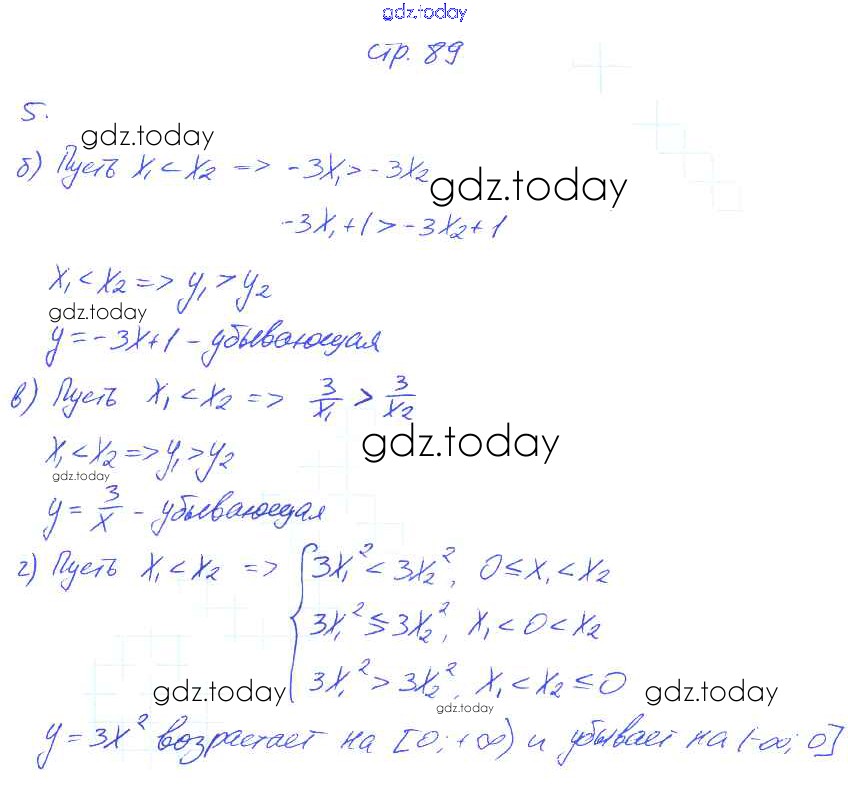 gdz.today
стр. 89
5.
gdz.today
б) Пусть x₁ < x₂ => -3x₁ > -3x₂
gdz.today
-3x₁+1 > -3x₂+1
x₁ < x₂ => y₁ > y₂
gdz.today
y = -3x+1 - убывающая
в) Пусть x₁ < x₂ => 3/x₁ > 3/x₂
gdz.today
x₁ < x₂ => y₁ > y₂
gdz.today
y = 3/x - убывающая
г) Пусть x₁ < x₂ => { 3x₁² < 3x₂², 0 ≤ x₁ < x₂
3x₁² ≶ 3x₂², x₁ < 0 < x₂
3x₁² > 3x₂², x₁ < x₂ ≤ 0
gdz.today gdz.today gdz.today
y = 3x² возрастает на [0; +∞) и убывает на (-∞; 0]